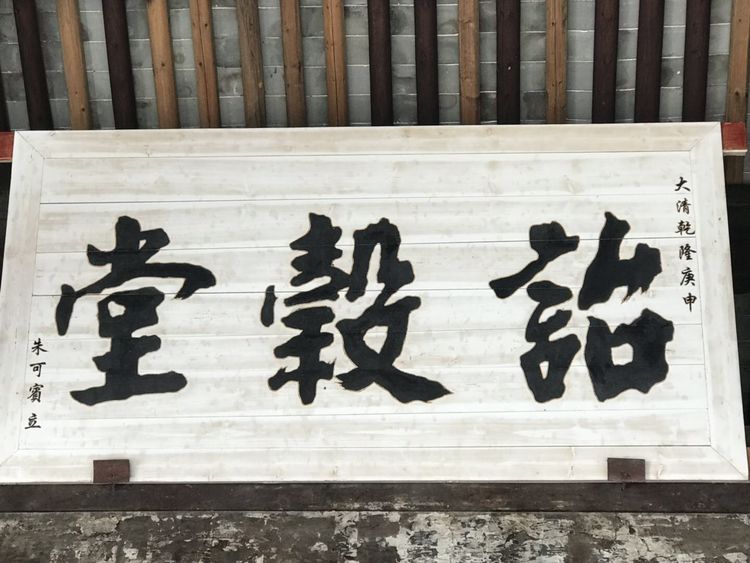 大清乾隆庚申
詒穀堂
朱可賓立